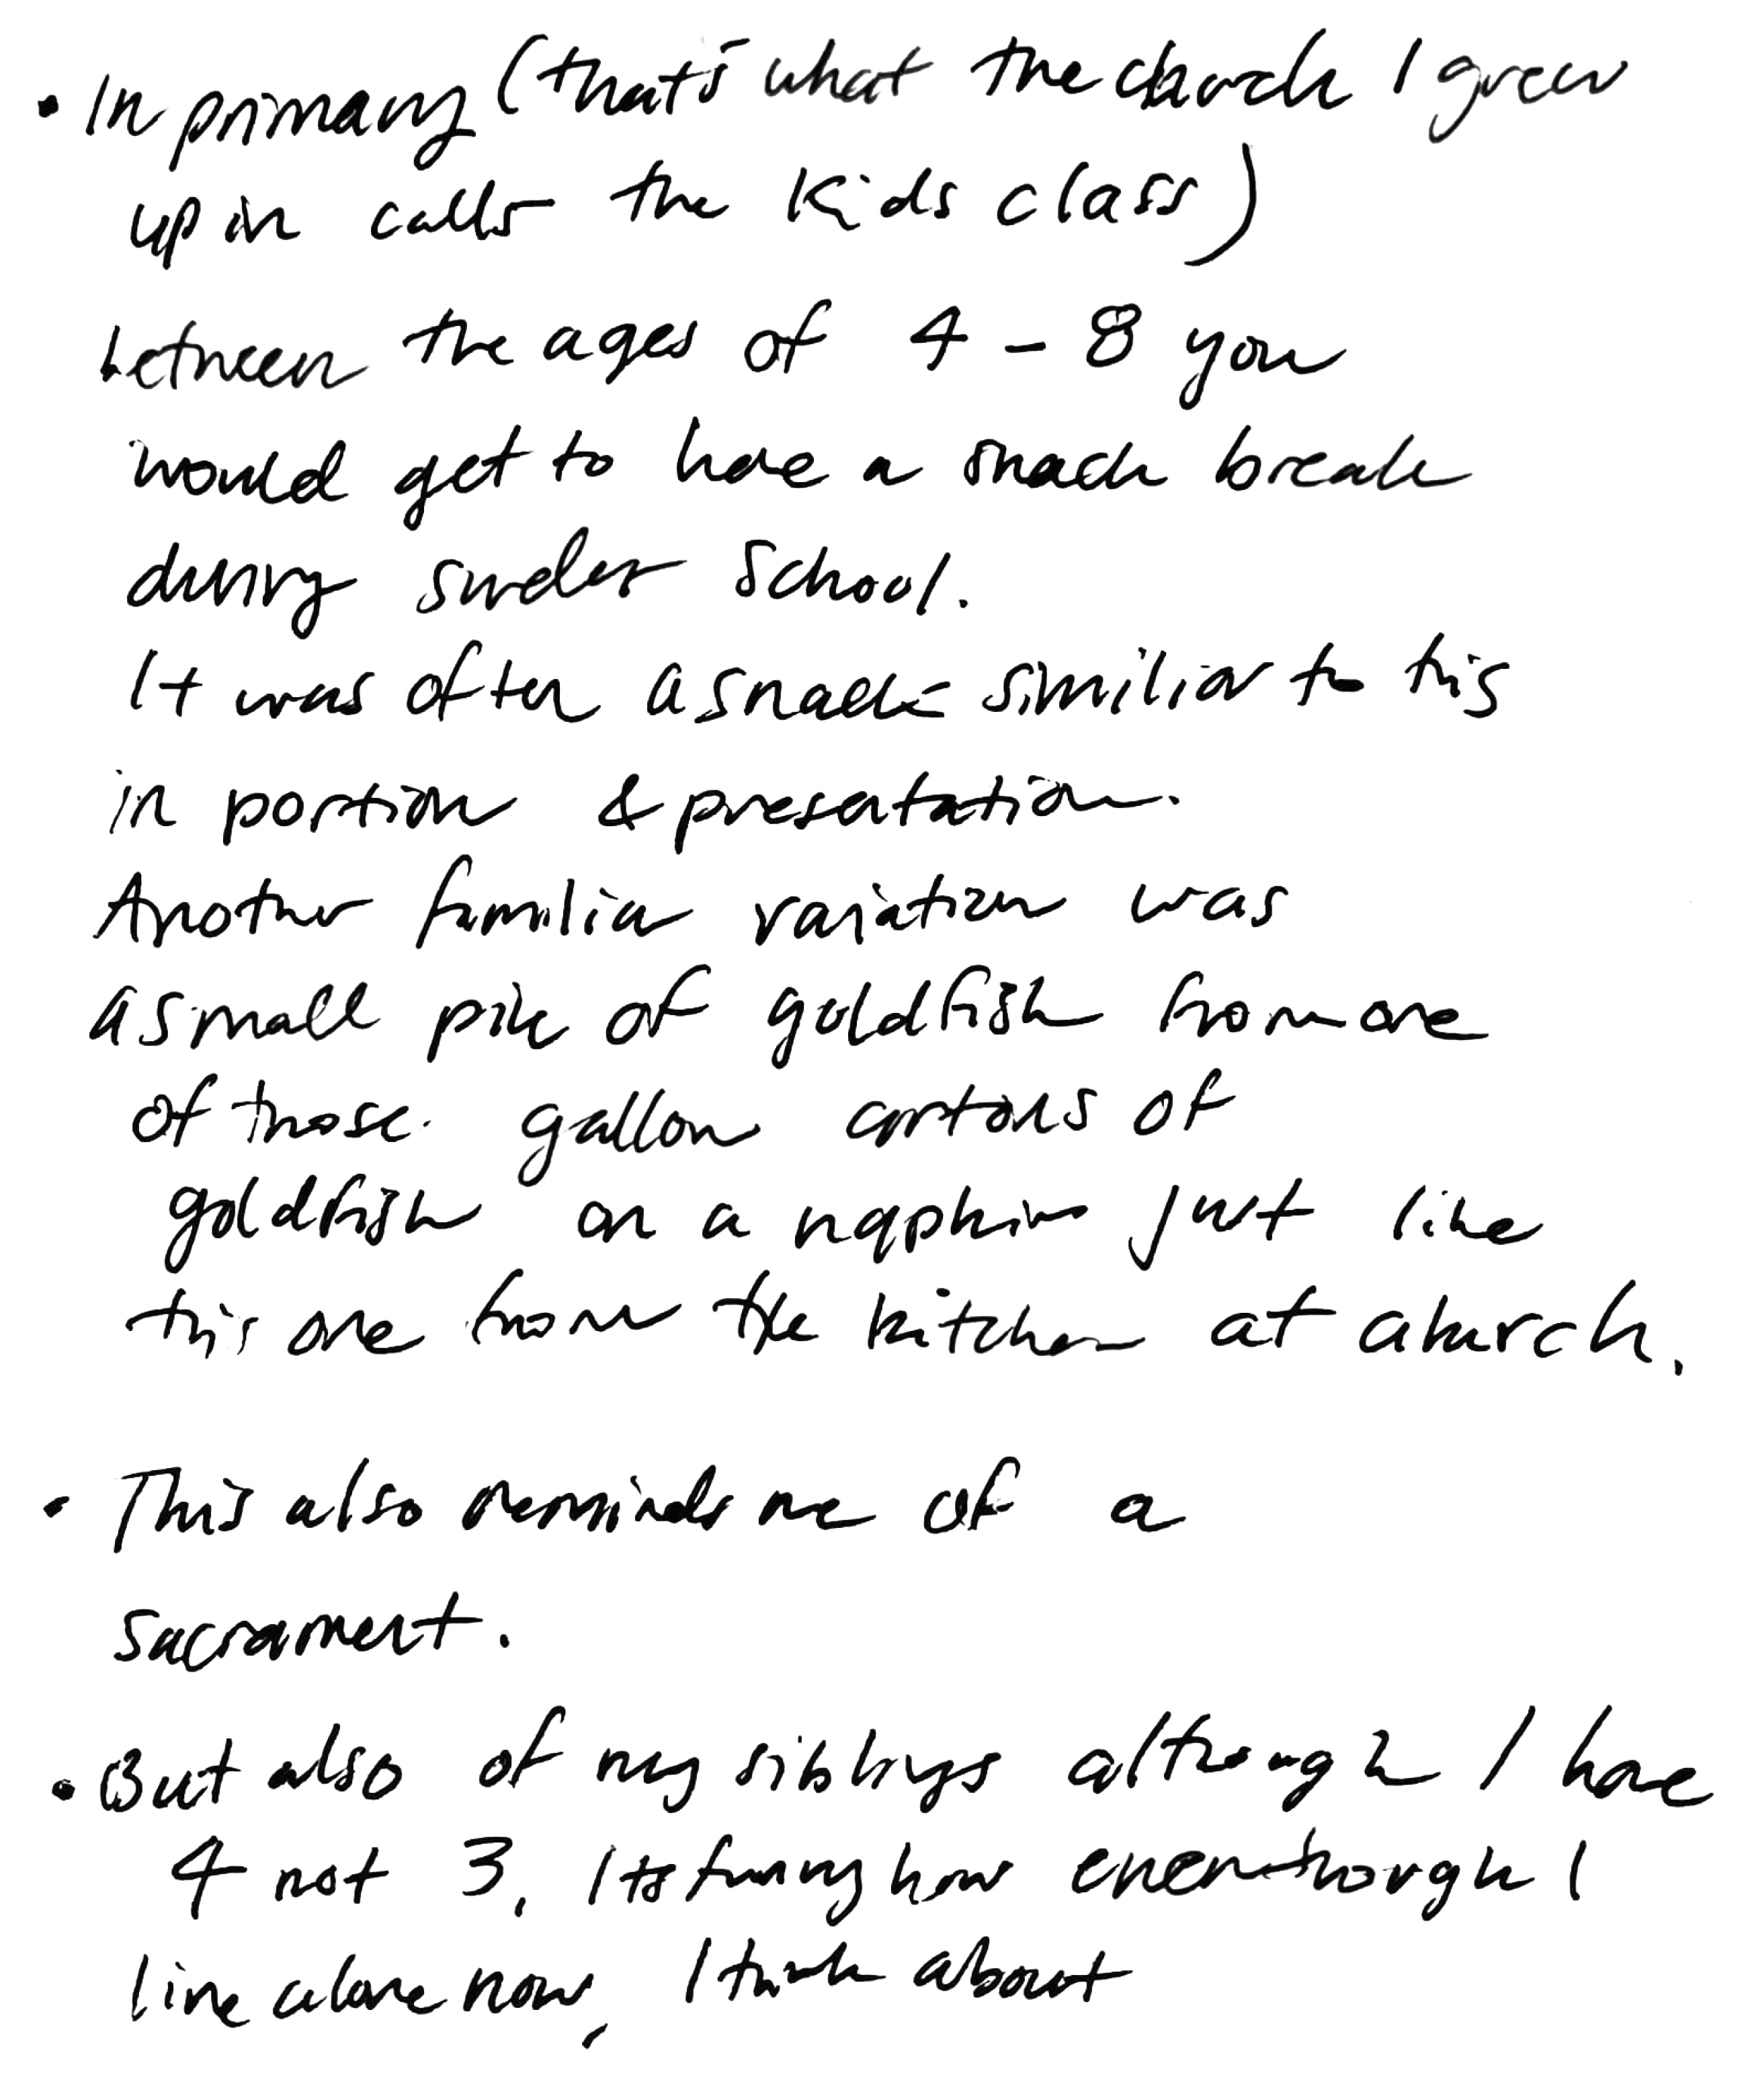 • In primary (that's what the church I grew
up in calls the kids class)
between the ages of 4 - 8 you
would get to have a snack break
during school.
It was often a snack similiar to this
in portion & presentation.
Another familiar variation was
a small pile of goldfish from one
of those gallon cartons of
goldfish on a napkin just like
this one from the kitchen at church.
• This also reminds me of a
sacrament.
• But also of my siblings although I have
4 not 3. Its funny how even though I
live alone now, I think about